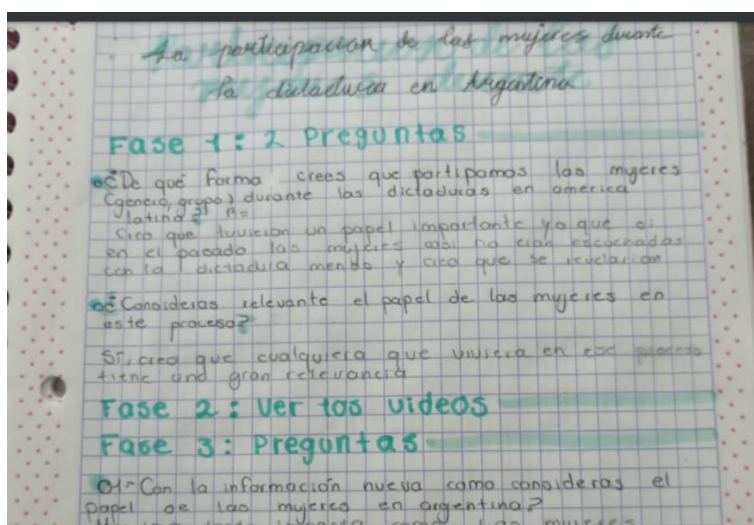 La participacion de las mujeres durante
la dictadura en Argentina
Fase 1: 2 Preguntas
¿De qué forma crees que partipamos las mujeres
(genero, grupo) durante las dictaduras en america
latina? R=
Creo que tuvieron un papel importante ya que si
en el pasado las mujeres casi no eran escuchadas
con la dictadura menos y creo que se revelaron
¿Consideras relevante el papel de las mujeres en
este proceso?
Sí, creo que cualquiera que viviera en ese proceso
tiene una gran relevancia
Fase 2: Ver los videos
Fase 3: Preguntas
01-Con la información nueva como consideras el
papel de las mujeres en argentina?